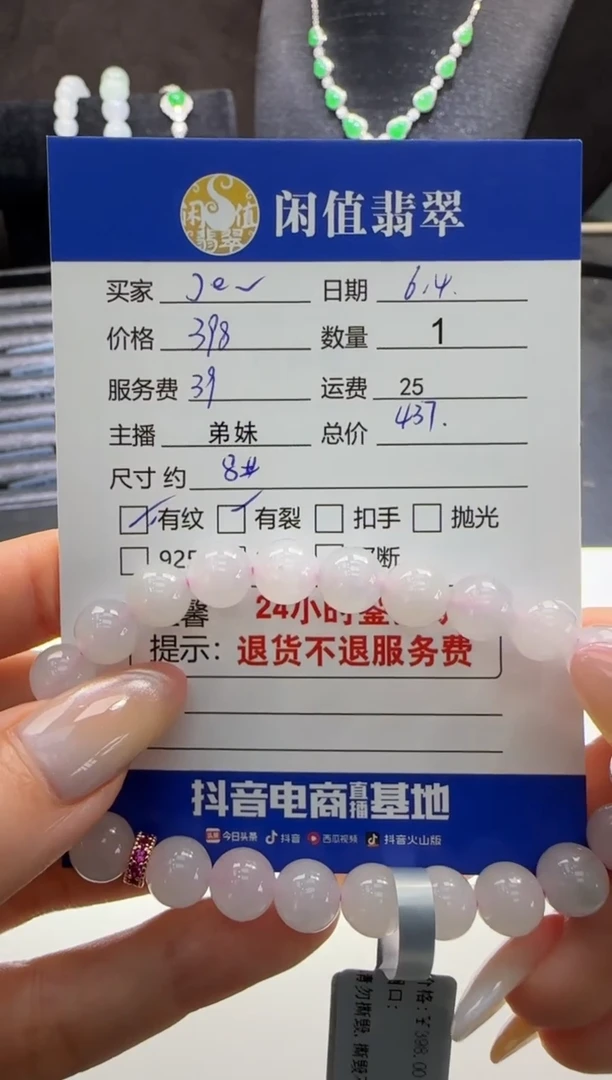 闲值翡翠
闲值翡翠
买家 Jev 日期 6.4.
价格 398 数量 1
服务费 39 运费 25
主播 弟妹 总价 437.
尺寸 约 8#
有纹 有裂 扣手 抛光
925 断
馨 24小时鉴
提示：退货不退服务费
抖音电商直播基地
头条 今日头条 抖音 西瓜视频 抖音火山版
价格：￥398.00
口：
请勿撕毁，撕毁